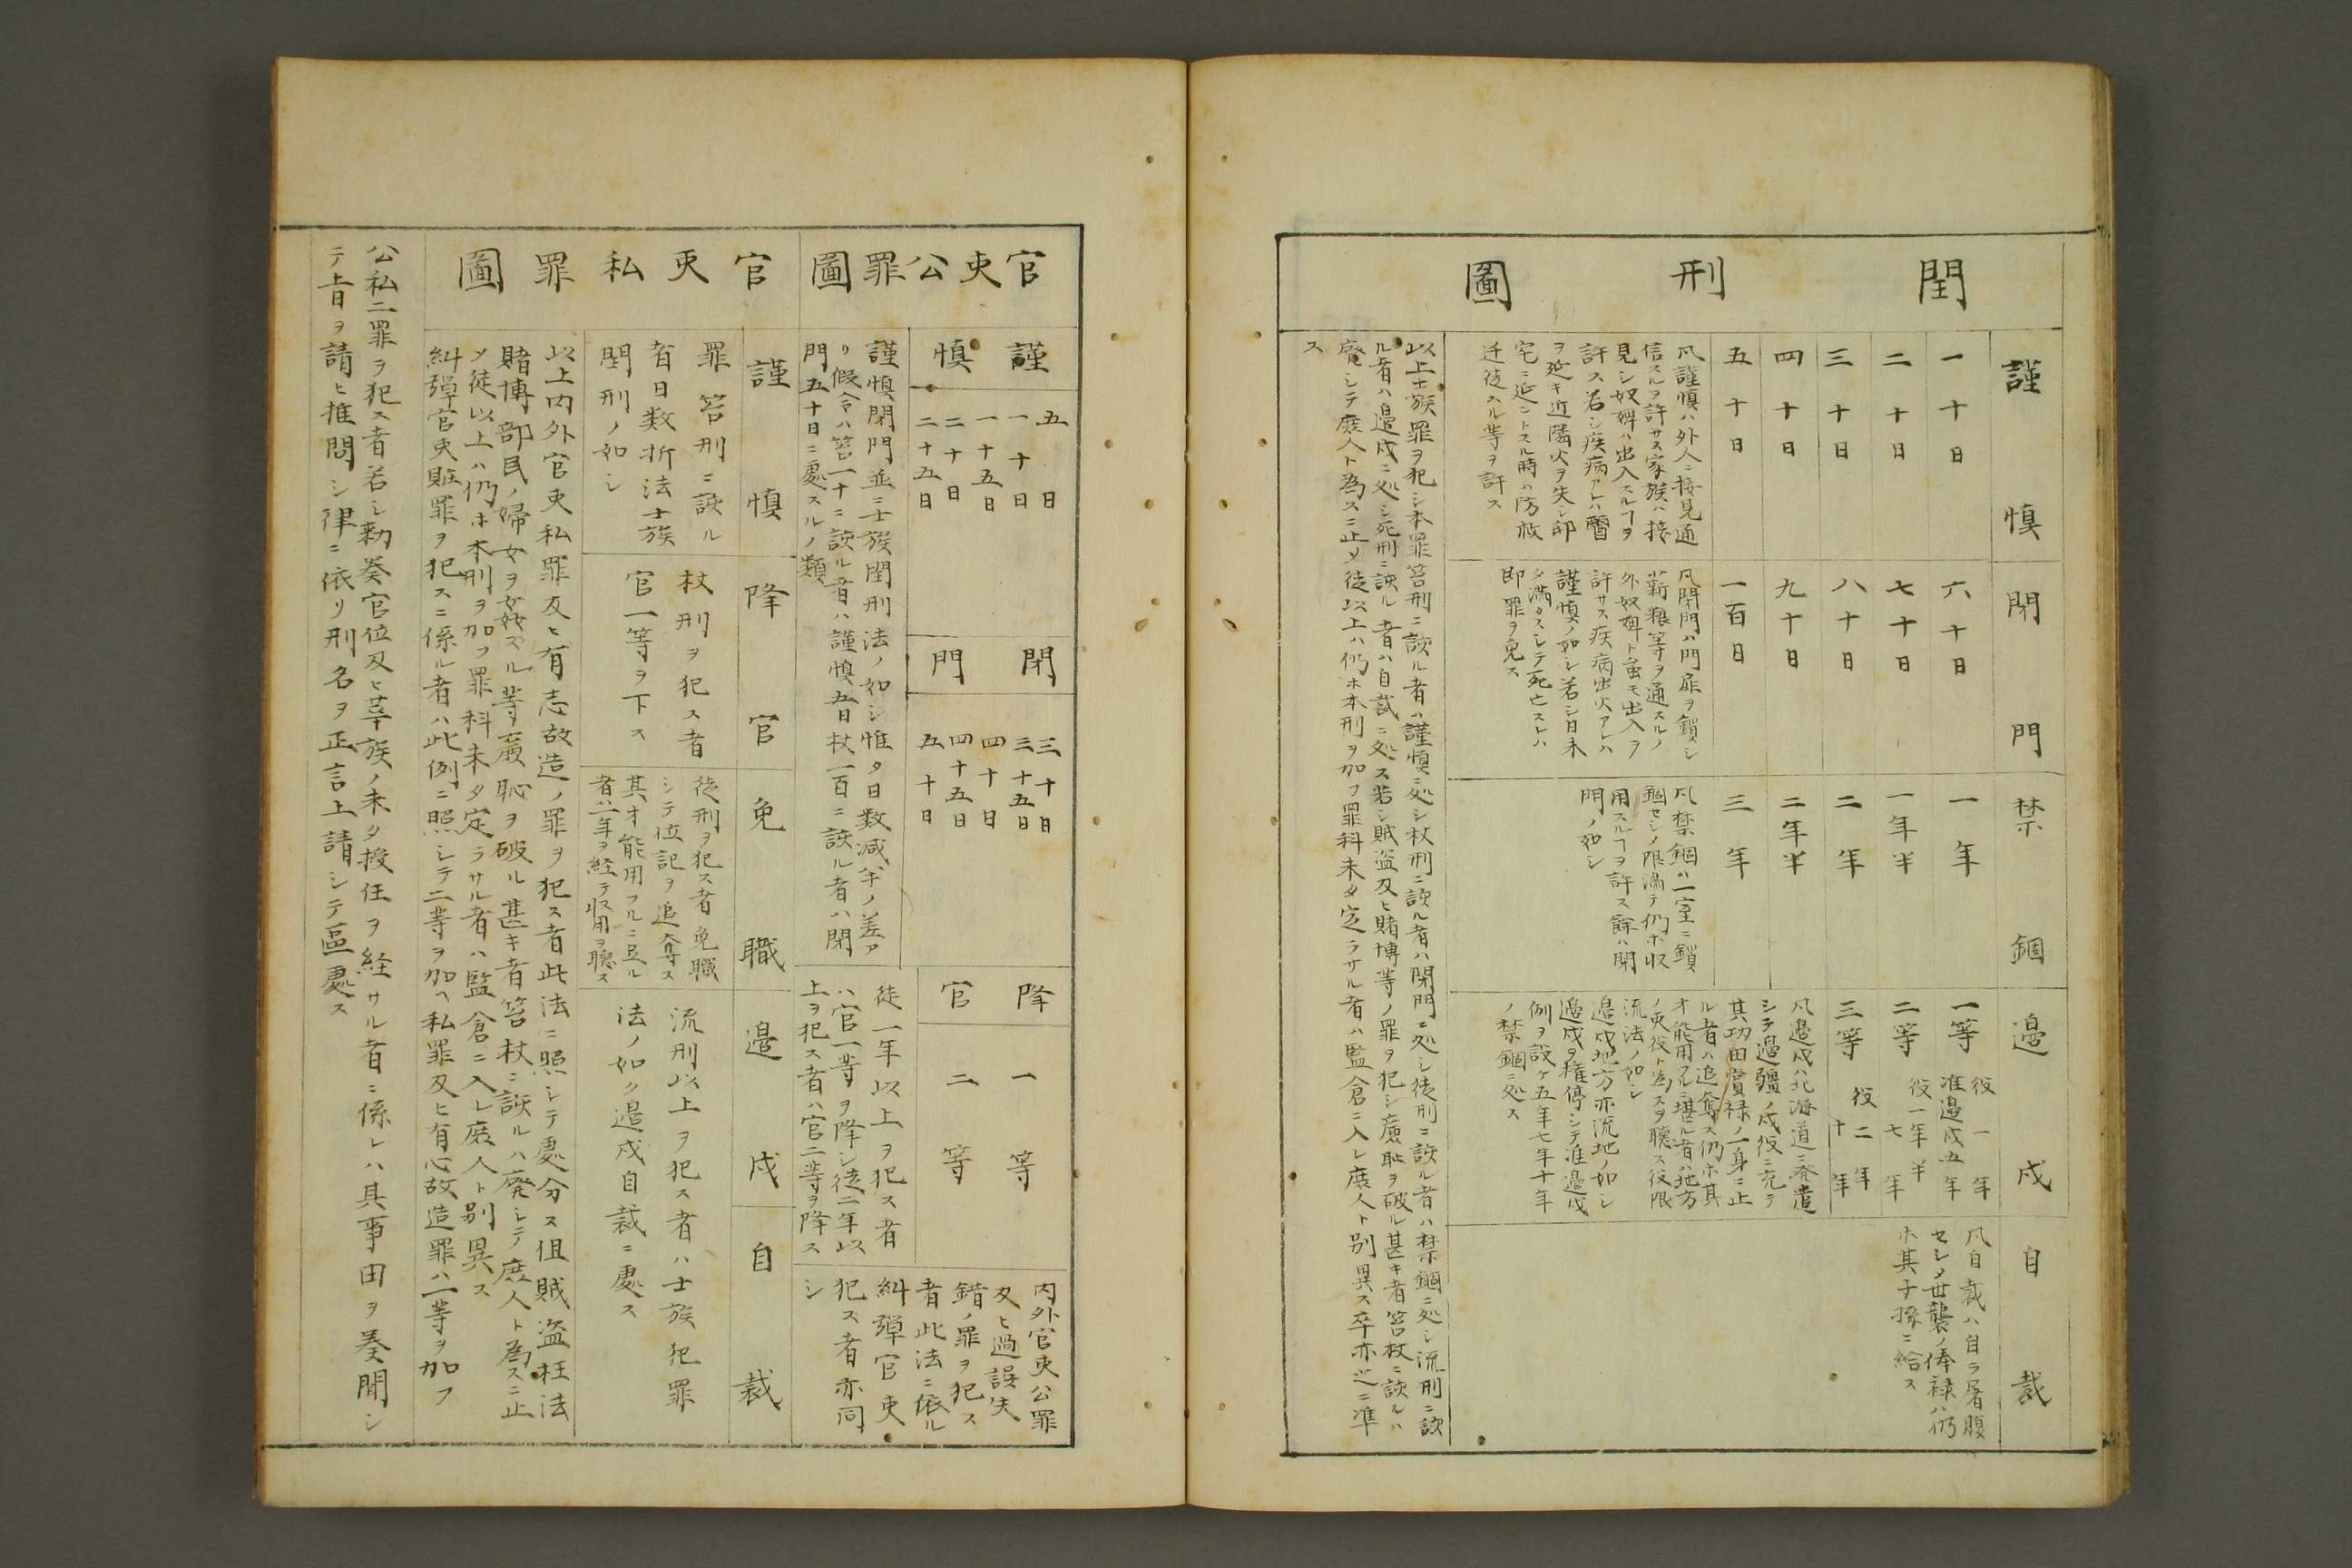 閏刑圖
謹慎
一十日
二十日
三十日
四十日
五十日
凡謹慎ハ外人ニ接見通
信スルヲ許サス家族ハ接
見シ奴婢ハ出入スルヿヲ
許ス若シ疾病アレハ醫
ヲ延キ近隣火ヲ失シ即
宅ニ延ントスル時ハ防救
迁徒スル等ヲ許ス
閉門
六十日
七十日
八十日
九十日
一百日
凡閉門ハ門扉ヲ鎖シ
薪粮等ヲ通スルノ
外奴婢ト虽モ出入ヲ
許サス疾病出火アレハ
謹慎ノ如シ若シ日未
タ満タスシテ死亡スレハ
即罪ヲ免ス
禁錮
一年
一年半
二年
二年半
三年
凡禁錮ハ一室ニ鎖
錮セシノ限満テ仍ホ収
用スルヿヲ許ス餘ハ閉
門ノ如シ
邉戍
一等 役一年
准邉戍五年
二等 役一年半
七年
三等 役二年
十年
凡邉戍ハ北海道ニ發遣
シテ邉疆ノ戍役ニ充テ
其功田賞禄ノ一身ニ止
ル者ハ追奪ス仍ホ其
才能用フルニ堪ル者ハ地方
ノ吏役ト為スヲ聴ス役限
流法ノ如シ
邉戍地方亦流地ノ如シ
邉戍ヲ権停シテ准邉戍
例ヲ設ケ五年七年十年
ノ禁錮ニ処ス
自裁
凡自裁ハ自ラ屠腹
セシム世襲ノ俸禄ハ仍
ホ其子孫ニ給ス
以上士族罪ヲ犯シ本罪笞刑ニ該ル者ハ謹慎ニ処シ杖刑ニ該ル者ハ閉門ニ処シ徒刑ニ該ル者ハ禁錮ニ処シ流刑ニ該
ル者ハ邉戍ニ処シ死刑ニ該ル者ハ自裁ニ処ス若シ賊盗及ヒ賭博等ノ罪ヲ犯シ廉恥ヲ破ル甚キ者笞杖ニ該ルハ
廃シテ庶人ト為スニ止メ徒以上ハ仍ホ本刑ヲ加フ罪科未タ定ラサル者ハ監倉ニ入レ庶人ト別異ス卒亦之ニ準
ス
官吏公罪圖
謹慎
五日
一十日
一十五日
二十日
二十五日
閉門
三十日
三十五日
四十日
四十五日
五十日
謹慎閉門並ニ士族閏刑法ノ如シ惟タ日数減半ノ差ア
リ假令ハ笞一十ニ該ル者ハ謹慎五日杖一百ニ該ル者ハ閉
門五十日ニ處スルノ類
降官
一等
二等
徒一年以上ヲ犯ス者
ハ官一等ヲ降シ徒二年以
上ヲ犯ス者ハ官二等ヲ降ス
内外官吏公罪
及ヒ過誤失
錯ノ罪ヲ犯ス
者此法ニ依ル
糾弾官吏
犯ス者亦同
シ
官吏私罪圖
謹慎
罪笞刑ニ該ル
者日数折法士族
閏刑ノ如シ
降官
杖刑ヲ犯ス者
官一等ヲ下ス
免職
徒刑ヲ犯ス者免職
シテ位記ヲ追奪ス
其才能用フルニ足ル
者ハ二年ヲ経テ収用ヲ聴ス
邉戍
自裁
流刑以上ヲ犯ス者ハ士族犯罪
法ノ如ク邉戍自裁ニ處ス
以上内外官吏私罪及ヒ有志故造ノ罪ヲ犯ス者此法ニ照シテ處分ス但賊盗枉法
賭博部民ノ婦女ヲ姦スル等廉恥ヲ破ル甚キ者笞杖ニ該ルハ廃シテ庶人ト為スニ止
メ徒以上ハ仍ホ本刑ヲ加フ罪科未タ定ラサル者ハ監倉ニ入レ庶人ト別異ス
糾弾官吏賍罪ヲ犯スニ係ル者ハ此例ニ照シテ二等ヲ加ヘ私罪及ヒ有心故造罪ハ一等ヲ加フ
公私二罪ヲ犯ス者若シ勅奏官位及ヒ華族ノ未タ授任ヲ経サル者ニ係レハ其事由ヲ奏聞シ
テ上旨ヲ請ヒ推問シ律ニ依リ刑名ヲ正言上請シテ區處ス